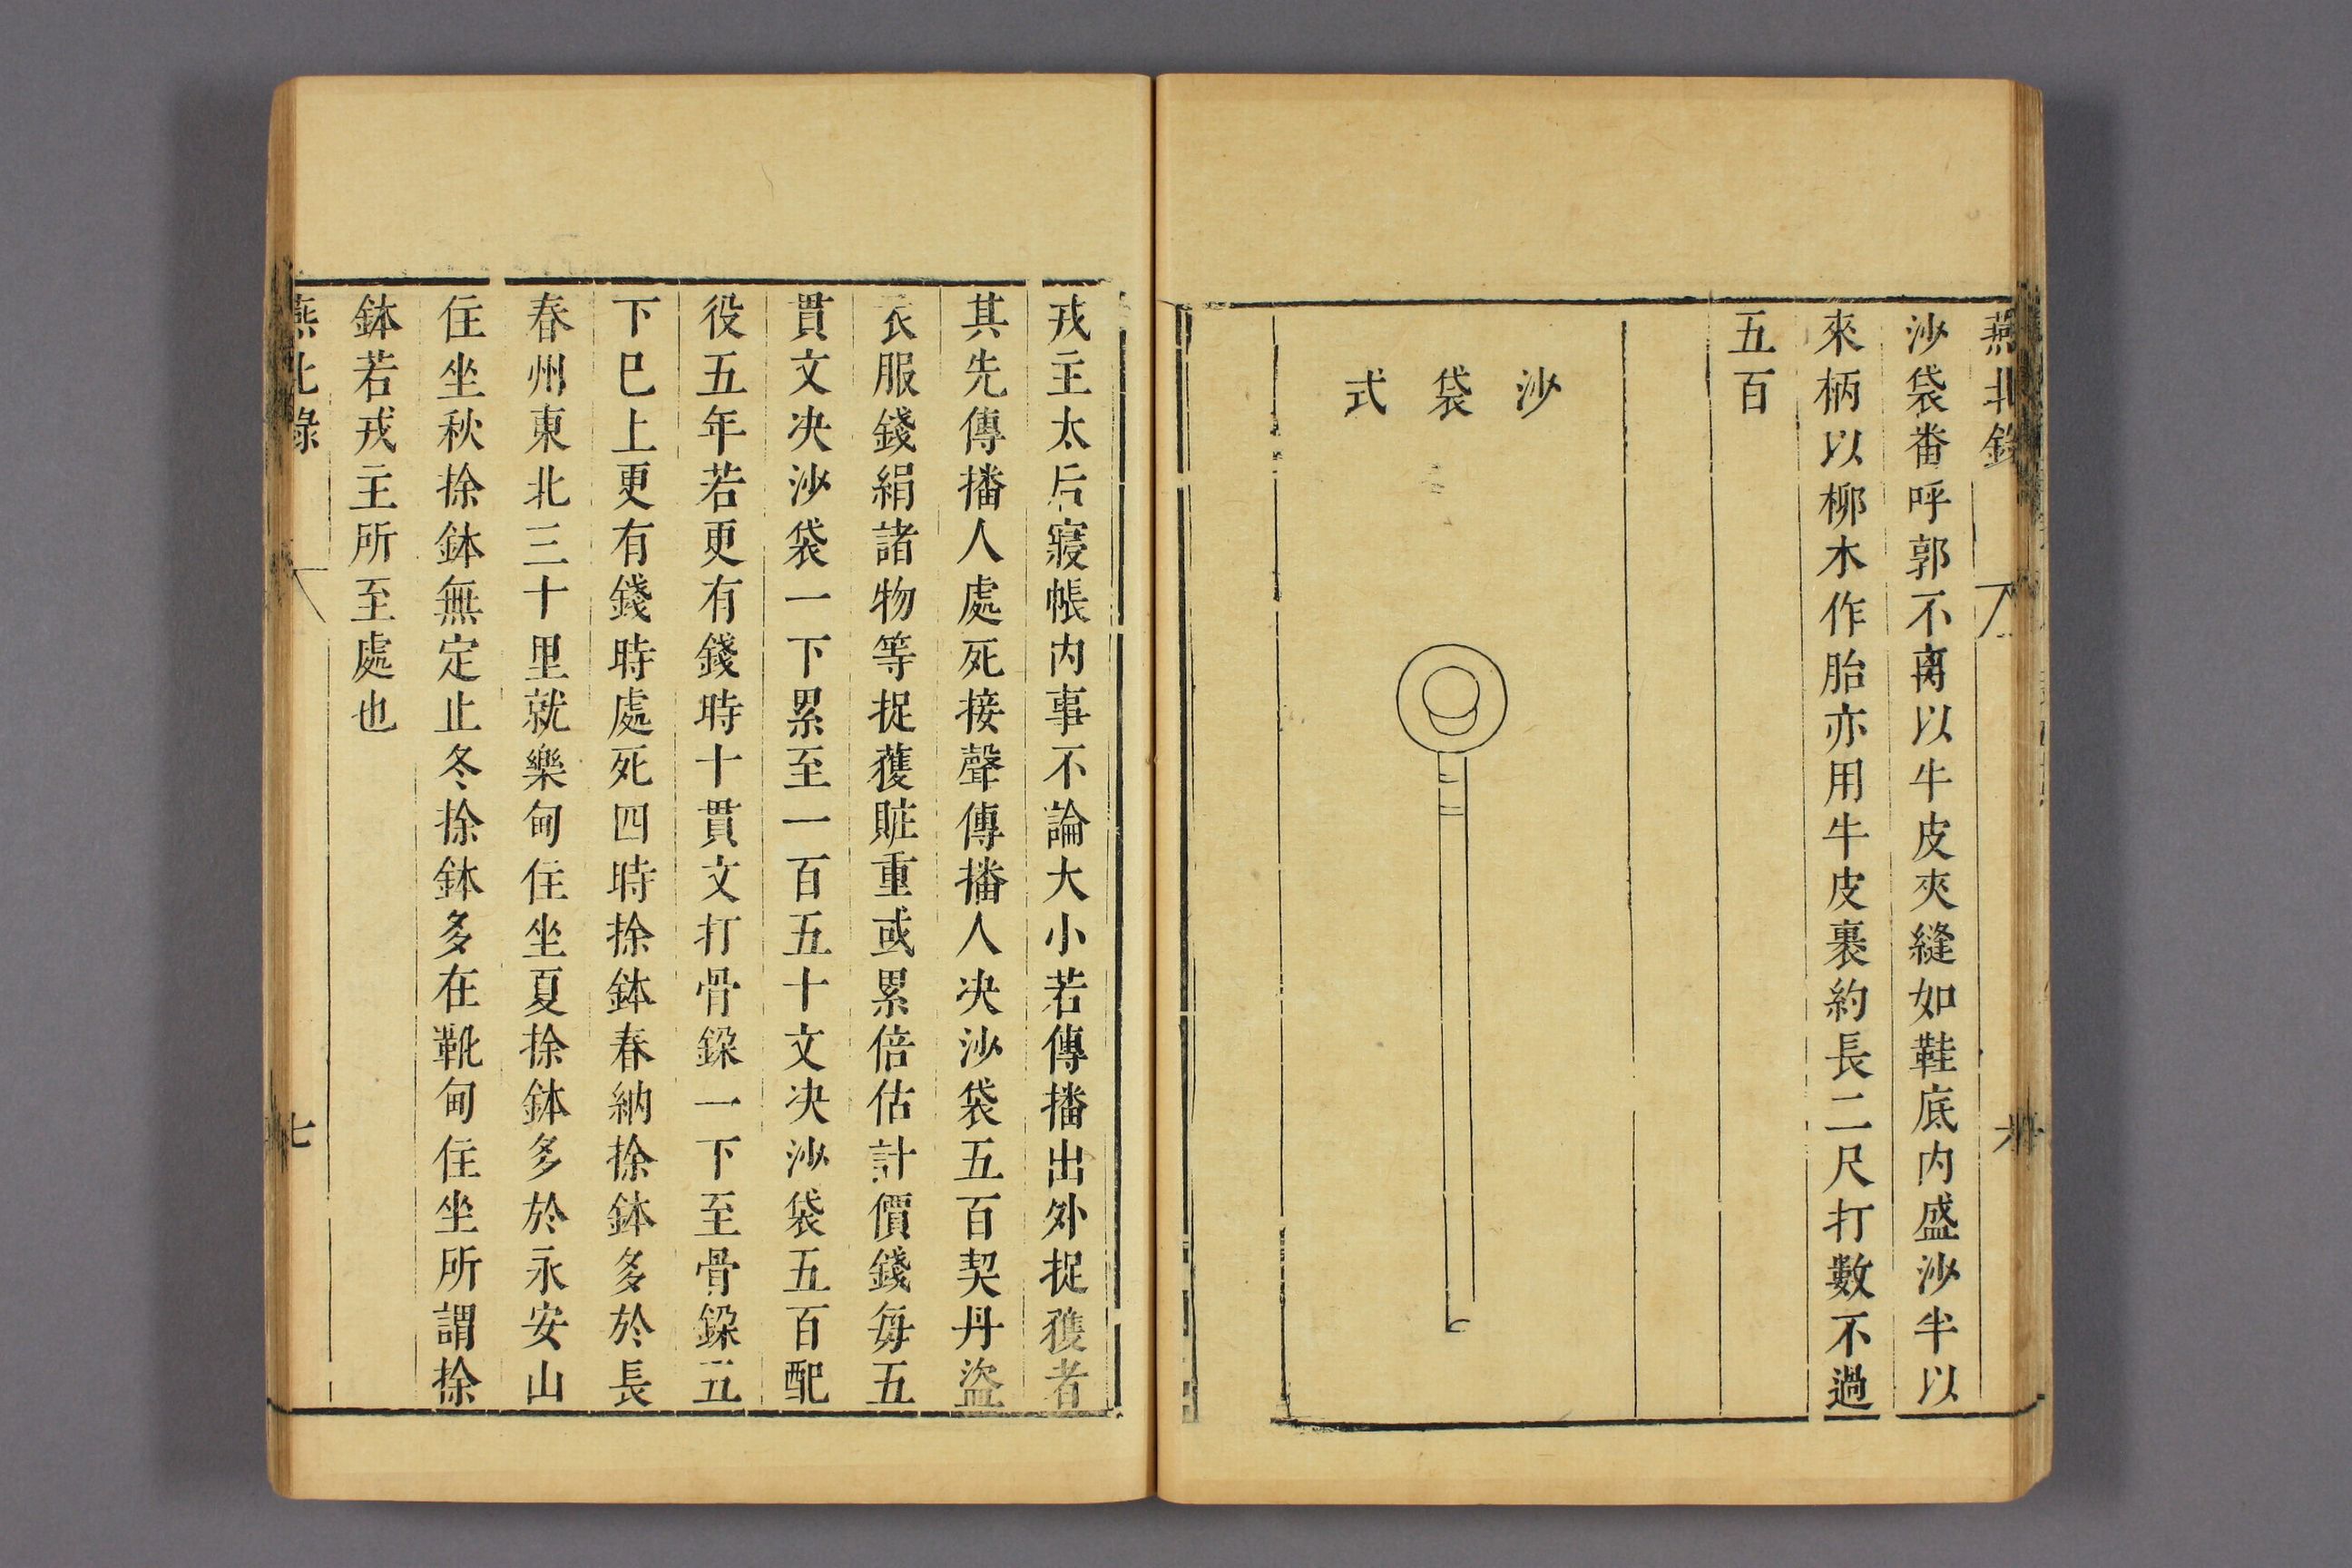 燕北錄
沙袋番呼郭不离以牛皮夾縫如鞋底内盛沙半以
來柄以柳木作胎亦用牛皮裹約長二尺打數不過
五百
沙袋式
戎主太后寢帳内事不論大小若傳播出外捉獲者
其先傳播人處死接聲傳播人决沙袋五百契丹盜
衣服錢絹諸物等捉獲賍重或累倍估計價錢每五
貫文决沙袋一下累至一百五十文决沙袋五百配
役五年若更有錢時十貫文打骨鍒一下至骨鍒五
下巳上更有錢時處死四時捺鉢春納捺鉢多於長
春州東北三十里就樂甸住坐夏捺鉢多於永安山
住坐秋捺鉢無定止冬捺鉢多在靴甸住坐所謂捺
鉢若戎主所至處也
燕北錄
七